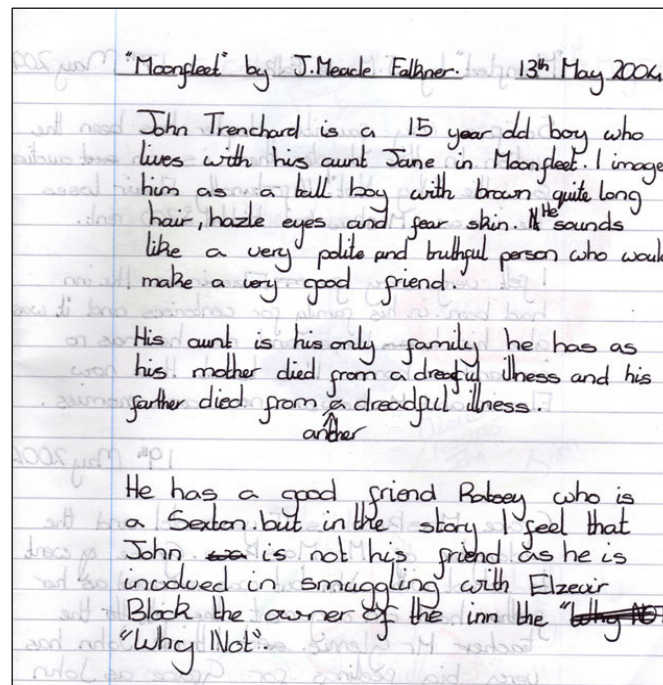 "Moonfleet" by J.Meade Falkner. 13th May 2004
John Trenchard is a 15 year old boy who
lives with his aunt Jane in Moonfleet. I image
him as a tall boy with brown quite long
hair, hazle eyes and fear skin. He sounds
like a very polite and truthful person who would
make a very good friend.
His aunt is his only family he has as
his mother died from a dreadful illness and his
farther died from a dreadful illness.
another
He has a good friend Ratsey who is
a Sexton. but in the story I feel that
John is not his friend as he is
involved in smuggling with Elzevir
Block the owner of the inn the "Why NOT
"Why Not".